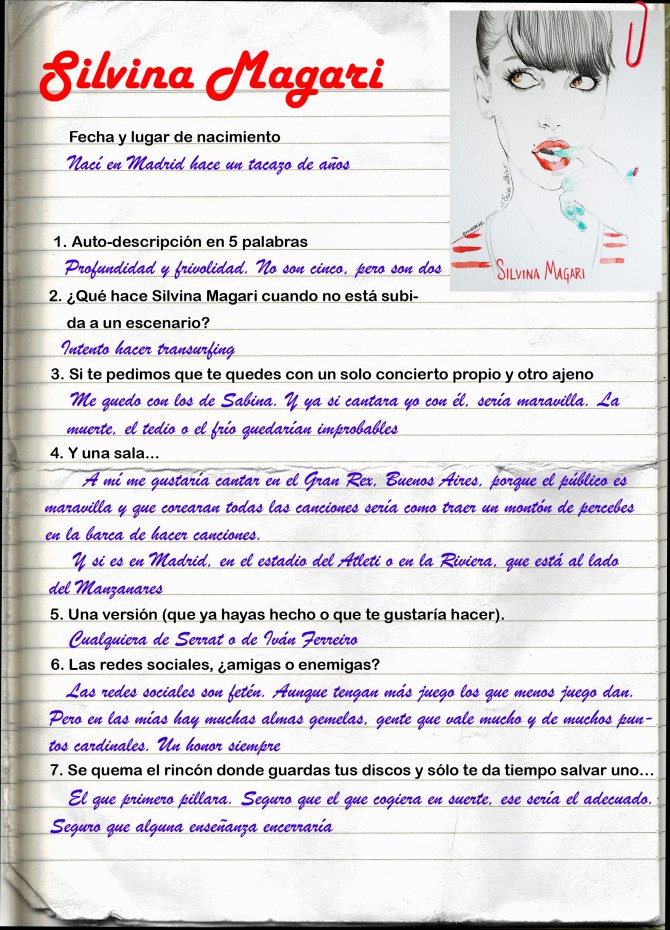 Silvina Magari
Fecha y lugar de nacimiento
Nací en Madrid hace un tacazo de años
SILVINA MAGARI
1. Auto-descripción en 5 palabras
Profundidad y frivolidad. No son cinco, pero son dos
2. ¿Qué hace Silvina Magari cuando no está subi-
da a un escenario?
Intento hacer transurfing
3. Si te pedimos que te quedes con un solo concierto propio y otro ajeno
Me quedo con los de Sabina. Y ya si cantara yo con él, sería maravilla. La
muerte, el tedio o el frío quedarían improbables
4. Y una sala...
A mí me gustaría cantar en el Gran Rex, Buenos Aires, porque el público es
maravilla y que corearan todas las canciones sería como traer un montón de percebes
en la barca de hacer canciones.
Y si es en Madrid, en el estadio del Atleti o en la Riviera, que está al lado
del Manzanares
5. Una versión (que ya hayas hecho o que te gustaría hacer).
Cualquiera de Serrat o de Iván Ferreiro
6. Las redes sociales, ¿amigas o enemigas?
Las redes sociales son fetén. Aunque tengan más juego los que menos juego dan.
Pero en las mías hay muchas almas gemelas, gente que vale mucho y de muchos pun-
tos cardinales. Un honor siempre
7. Se quema el rincón donde guardas tus discos y sólo te da tiempo salvar uno...
El que primero pillara. Seguro que el que cogiera en suerte, ese sería el adecuado.
Seguro que alguna enseñanza encerraría